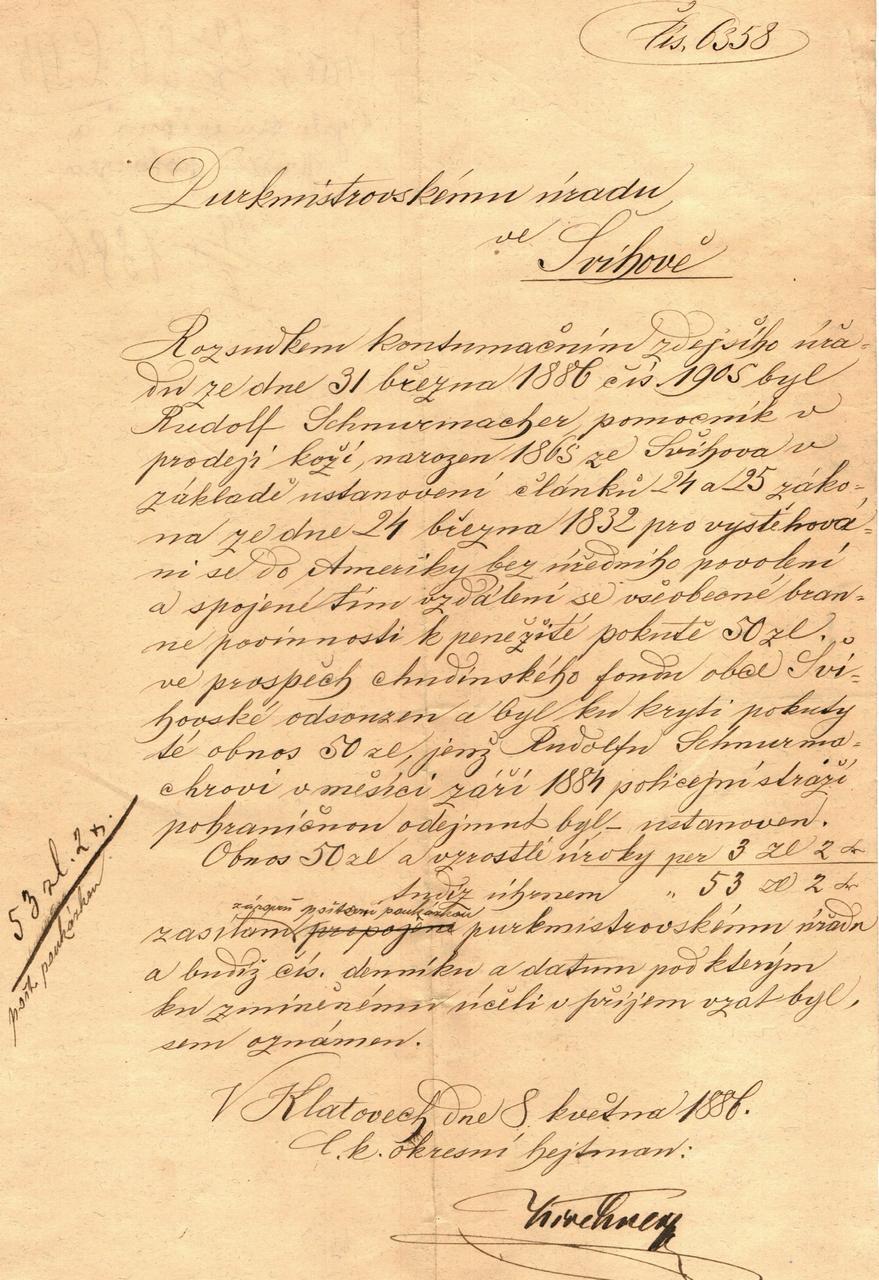 Čís. 6358
Purkmistrovskému úřadu
ve
Švihově
Rozsudkem kontumačním zdejšího úřa-
du ze dne 31 března 1886 čís. 1905 byl
Rudolf Schnurmacher, pomocník v
prodeji koží, narozen 1865 ze Švihova v
základě ustanovení článků 24 a 25 záko-
na ze dne 24 března 1832 pro vystěhová-
ní se do Ameriky bez úředního povolení
a spojené tím vzdálení se všeobecné bran-
né povinnosti k peněžité pokutě 50 zl.
ve prospěch chudinského fondu obce Švi-
hovské odsouzen a byl ku krytí pokuty
té obnos 50 zl, jenž Rudolfu Schnurma-
chrovi v měsíci září 1884 policejní stráží
pohraničnou odejmut byl – ustanoven.
Obnos 50 zl a vzrostlé úroky per 3 zl 2 kr
tudíž úhrnem „ 53 zl 2 kr
zároveň poštovní poukázkou
zasílám připojené purkmistrovskému úřadu
a budiž čís. denníku a datum pod kterým
ku zmíněnému účeli v příjem vzat byl,
sem oznámen.
53 zl. 2 kr.
pošt. poukázkou
V Klatovech dne 8. května 1886.
C. k. okresní hejtman: